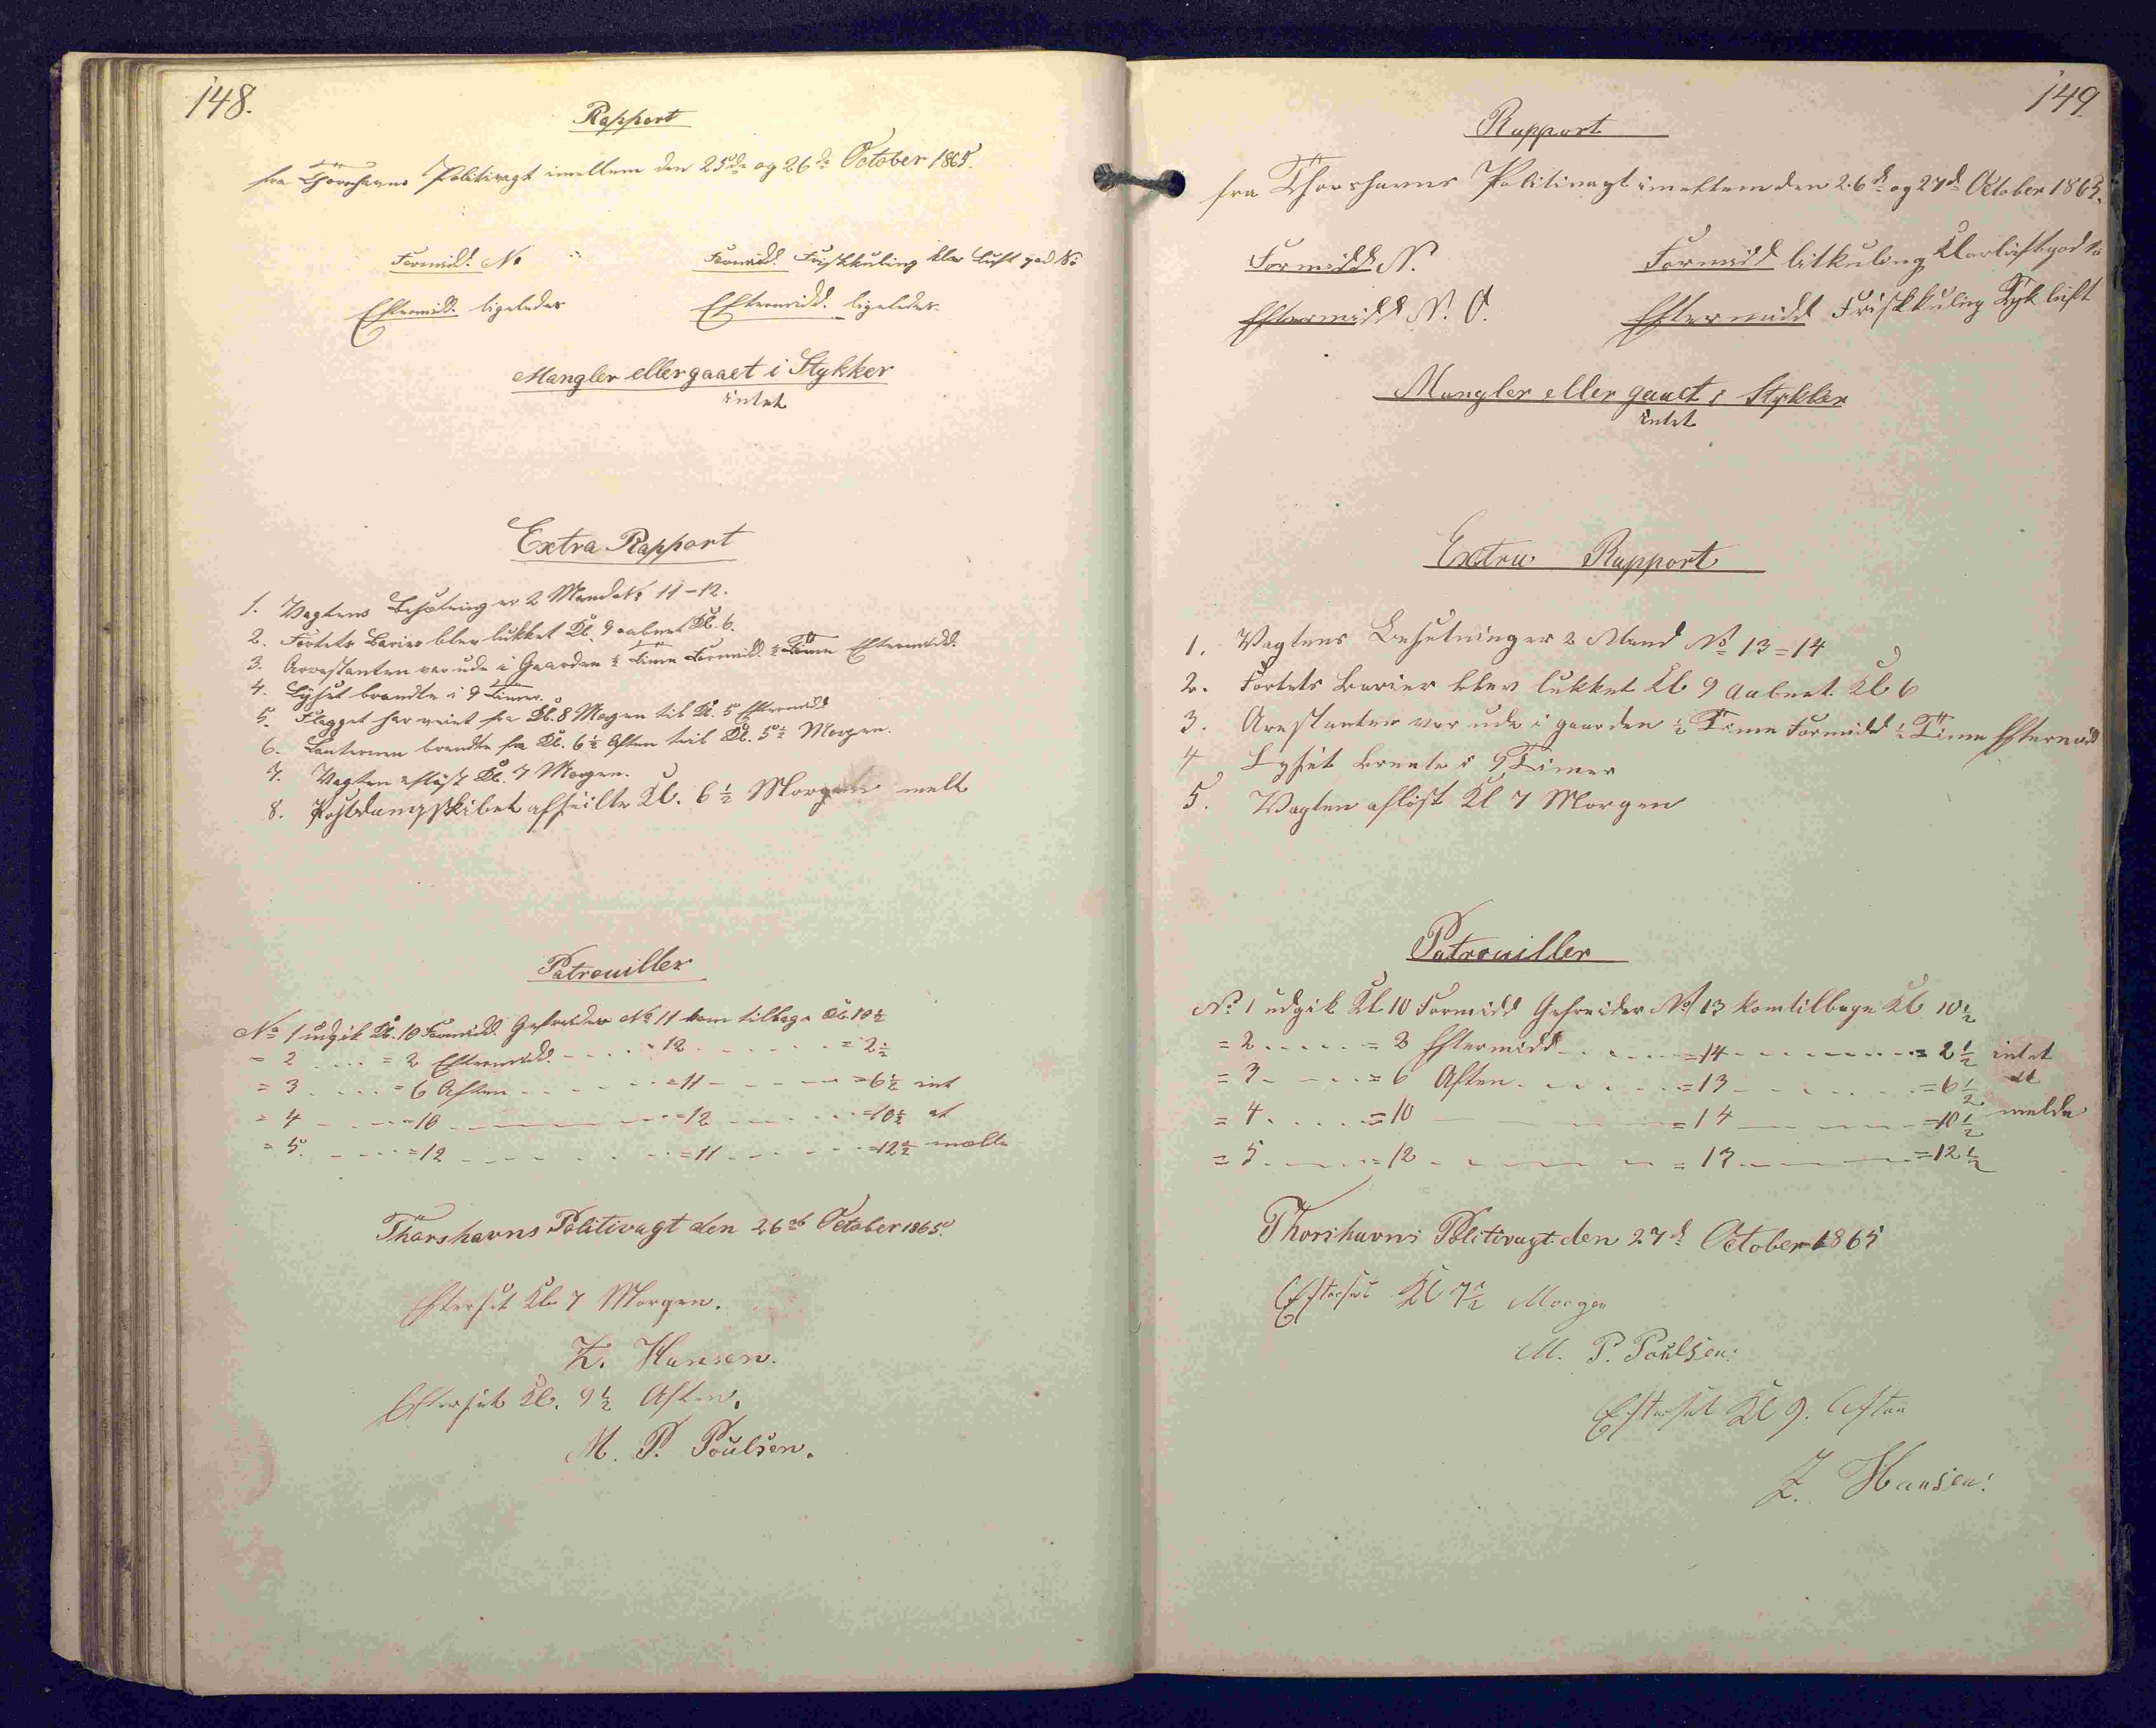 148.
Rapport
fra Thorshavns Politivagt imellem den 25de og 26de October 1865.
Formidd. N. Formidd. Friskkuling klar Luft god Si
Eftermidd. ligeledes Eftermidd. ligeledes.
Mangler eller gaaet i Stykker
intet
Extra Rapport
1. Vagtens Besætning er 2 Mand No 11-12.
2. Fortets Barier blev lukket Kl. 9 aabnet Kl. 6.
3. Arrestanten var ude i Gaarden ½ Time Formidd. ½ Time Eftermidd.
4. Lyset brændte i 9 Timer.
5. Flagget har veiet fra Kl. 8 Morgen til Kl. 5 Eftermidd
6. Lanternen brændte fra Kl. 6½ Aften til Kl. 5½ Morgen.
7. Vagten afløst Kl. 7 Morgen.
8. Postdampskibet afseilte Kl. 6½ Morgen melt
Patrouiller
No 1 udgik Kl. 10 Formidd. Gefreider No 11 kom tilbage Kl. 10½
= 2 .... = 2 Eftermidd. .... 12 .... = 2½
= 3 .... = 6 Aften .... = 11 .... = 6½ int
= 4 .... = 10 .... = 12 .... = 10½ at
= 5. .... = 12 .... = 11 .... = 12½ mælle
Thorshavns Politivagt den 26de October 1865.
Efterset Kl. 7 Morgen.
Z. Hansen.
Efterset Kl. 9½ Aften.
M. P. Poulsen.
149
Rapport
fra Thorshavns Politivagt imellem den 26d og 27d October 1865.
Formidd N. Formidd litkuling Klarluft god Si
Eftermidd N. O. Eftermidd Friskkuling Tyk luft
Mangler eller gaaet i Stykker
intet
Extra Rapport
1. Vagtens Besetning er 2 Mand No 13=14
2. Fortets Barier blev lukket Kl 9 aabnet Kl 6
3. Arestanten var ude i gaarden ½ Time Formidd ½ Time Eftermidd
4 Lyset brente i 9 Timer
5. Vagten afløst Kl 7 Morgen
Patrouiller
No 1 udgik Kl 10 Formidd Gefreider No 13 kom tilbage Kl 10½
= 2 ..... = 2 Eftermidd .... = 14 .... = 2½ intet
= 3 .... = 6 Aften .... = 13 .... = 6½ at
= 4 .... = 10 .... = 14 .... = 10½ melde
= 5 .... = 12 .... = 13 .... = 12½
Thorshavns Politivagt den 27d October 1865
Efterset Kl 7½ Morgen
M. P. Poulsen.
Efterset Kl 9. Aften
Z. Hansen.